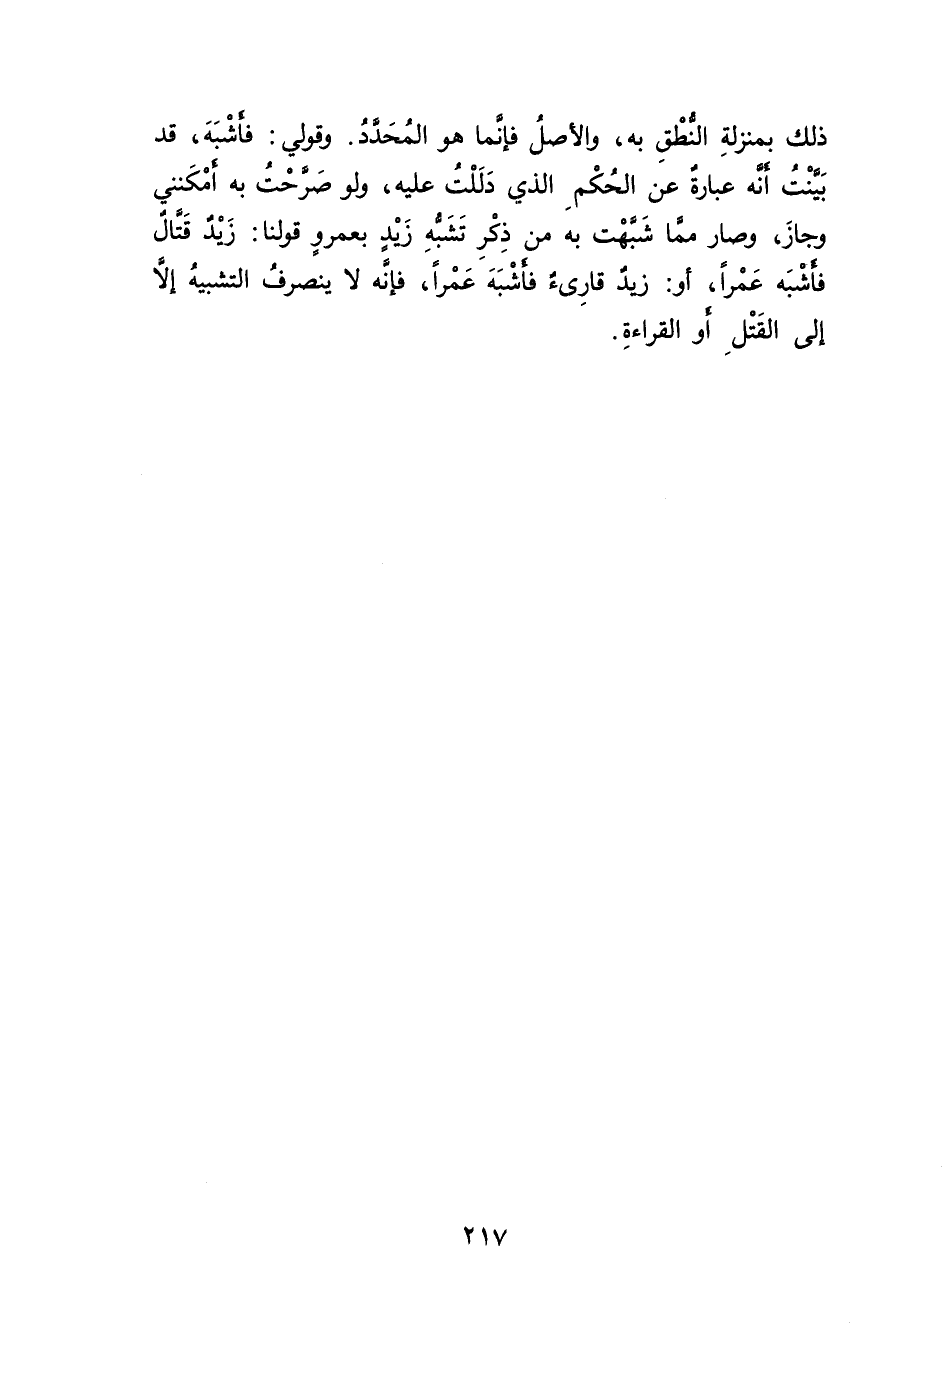 ذلك بمنزلةِ النُّطْقِ به، والأصلُ فإنَّما هو المُحَدَّدُ. وقولي: فأَشْبَهَ، قد
بَيَّنْتُ أنَّه عبارةٌ عن الحُكْمِ الذي دَلَلْتُ عليه، ولو صَرَّحْتُ به أَمْكَنني
وجازَ، وصار ممَّا شَبَّهْت به من ذِكْرِ تَشَبُّهِ زَيْدٍ بعمروٍ قولنا: زَيْدٌ قَتَّالٌ
فأَشْبَه عَمْراً، أو: زيدٌ قارِىءٌ فأَشْبَهَ عَمْراً، فإنَّه لا ينصرفُ التشبيهُ إلاَّ
إلى القَتْلِ أَو القراءةِ.
٢١٧